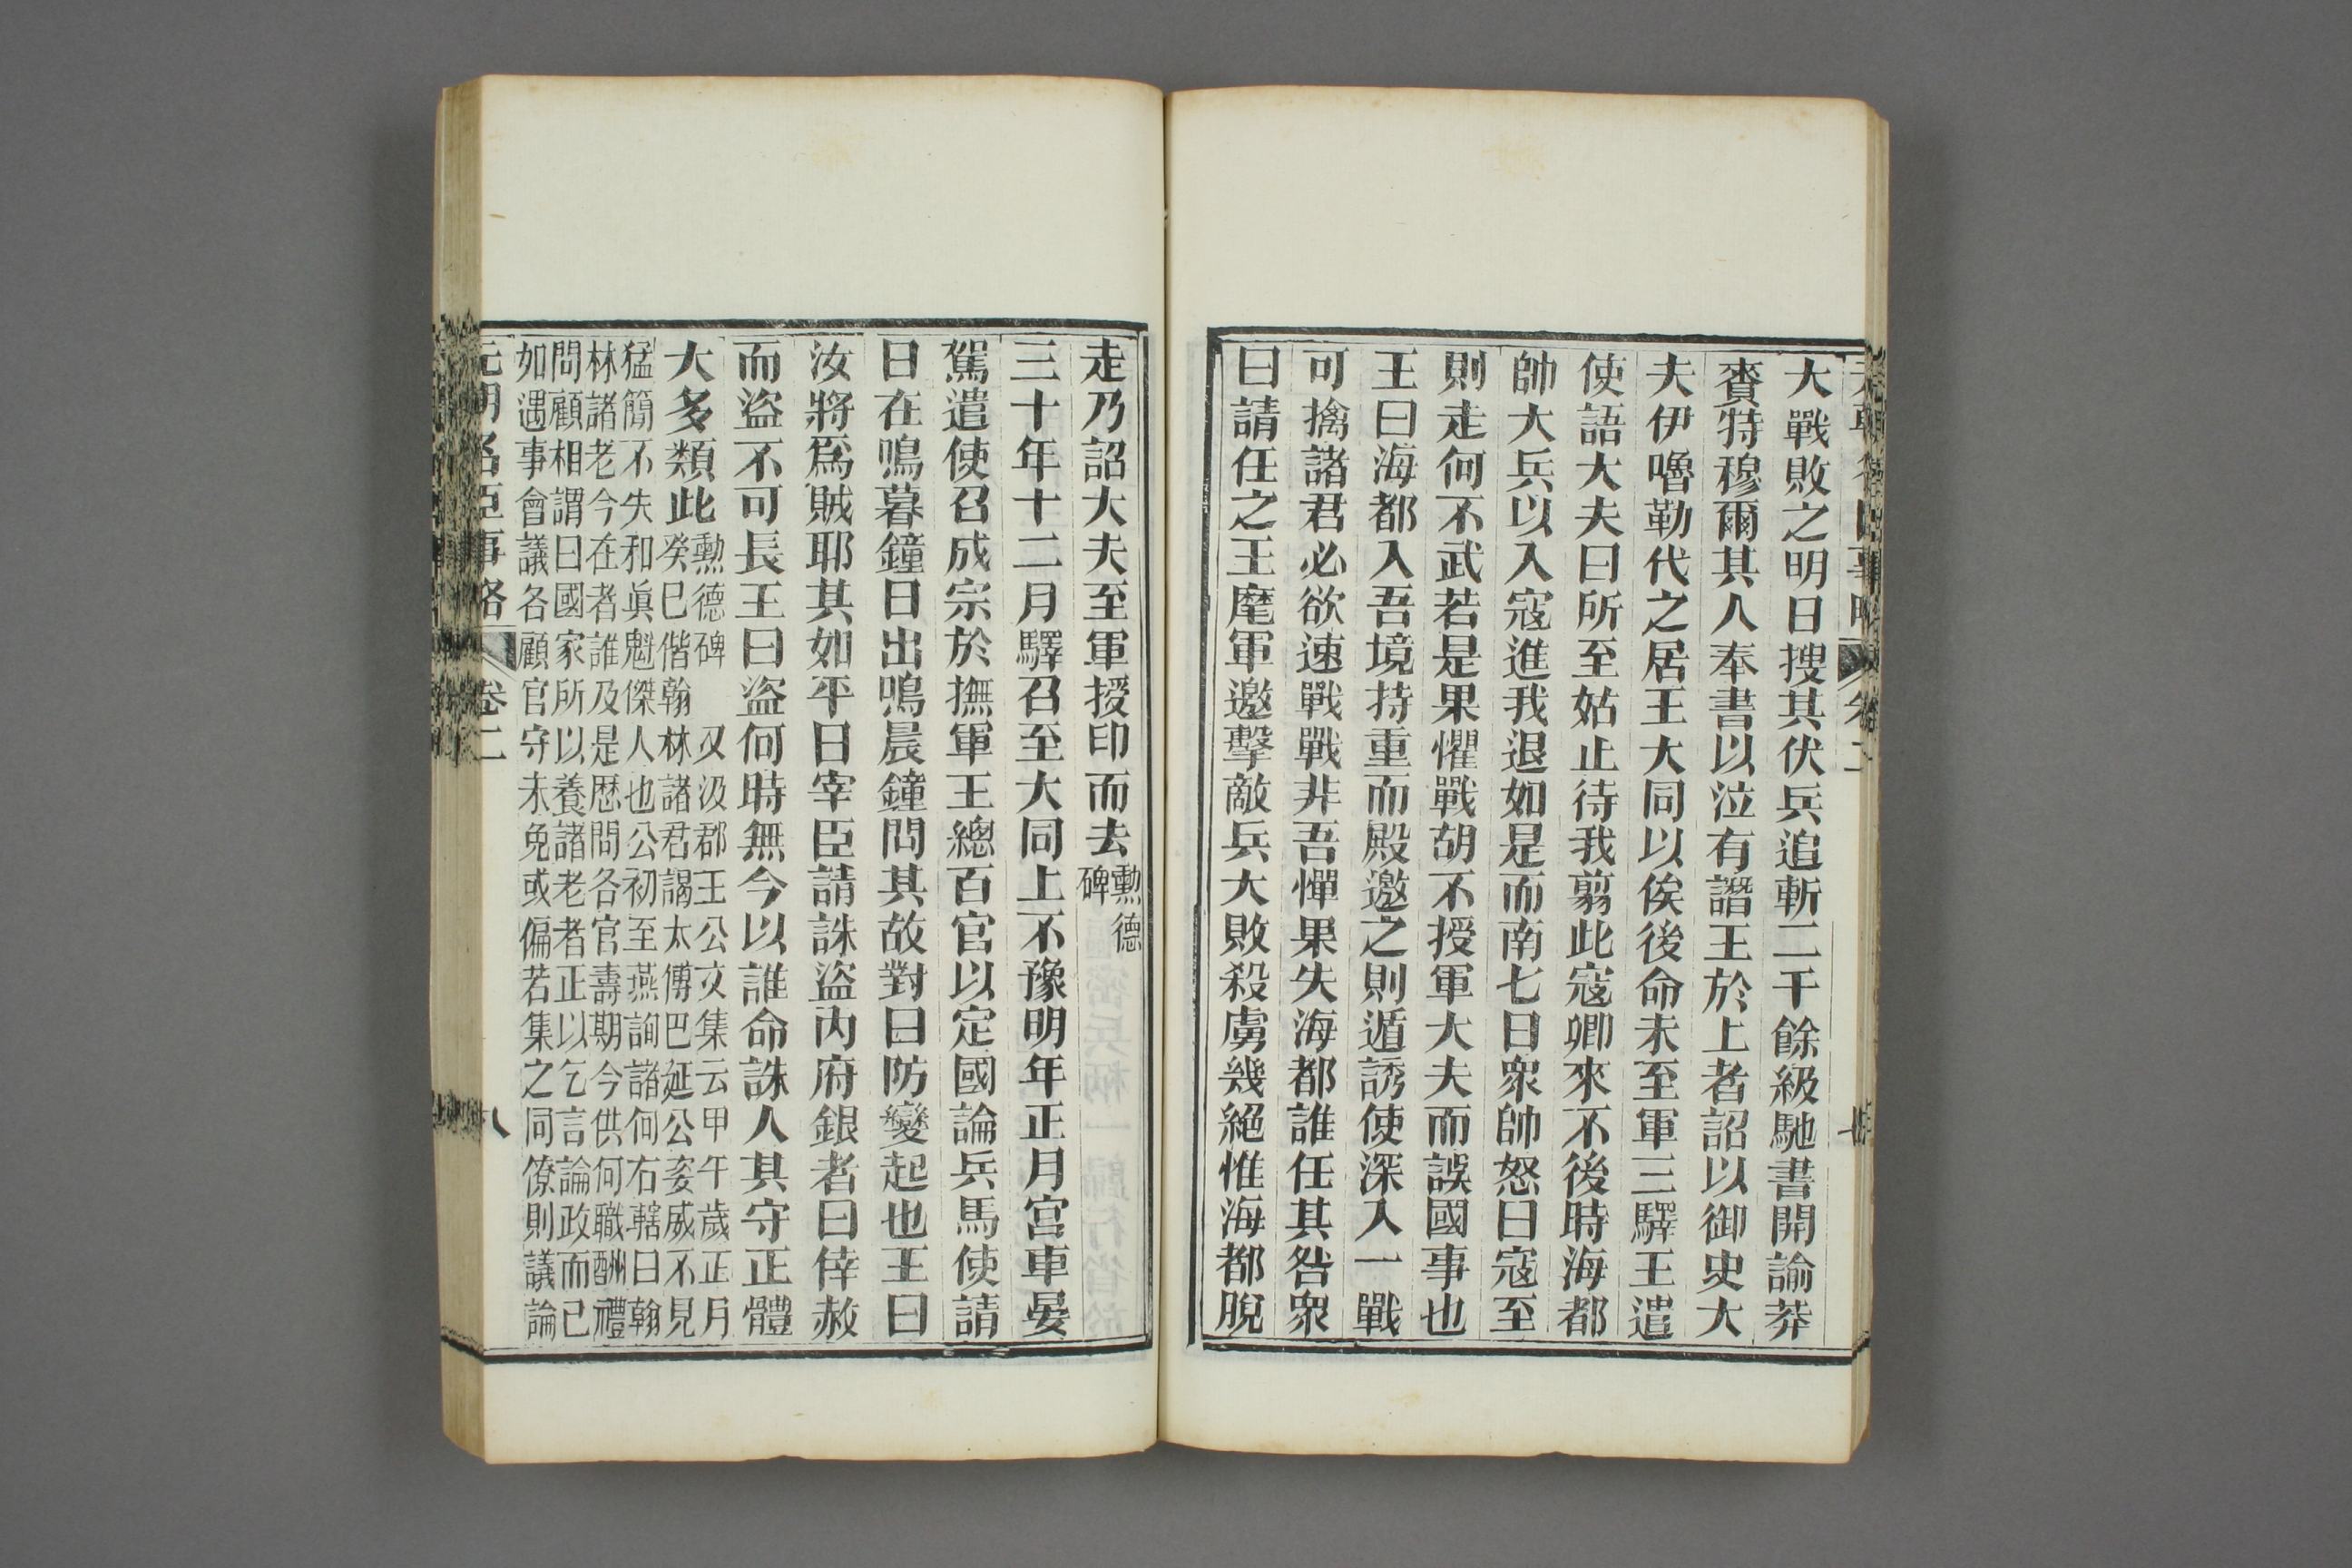 大戰敗之明日搜其伏兵追斬二千餘級馳書開諭莽
賚特穆爾其人奉書以泣有譖王於上者詔以御史大
夫伊嚕勒代之居王大同以俟後命未至軍三驛王遣
使語大夫曰所至姑止待我翦此寇卿來不後時海都
帥大兵以入寇進我退如是而南七日衆帥怒曰寇至
則走何不武若是果懼戰胡不授軍大夫而誤國事也
王曰海都入吾境持重而殿邀之則遁誘使深入一戰
可擒諸君必欲速戰戰非吾憚果失海都誰任其咎衆
曰請任之王麾軍邀擊敵兵大敗殺虜幾絕惟海都脫
走乃詔大夫至軍授印而去勲德碑
三十年十二月驛召至大同上不豫明年正月宮車晏
駕遣使召成宗於撫軍王總百官以定國論兵馬使請
日在鳴暮鐘日出鳴晨鐘問其故對曰防變起也王曰
汝將爲賊耶其如平日宰臣請誅盜內府銀者曰倖赦
而盜不可長王曰盜何時無今以誰命誅人其守正體
大多類此勲德碑 又汲郡王公文集云甲午歲正月
癸巳偕翰林諸君謁太傅巴延公姿威不見
猛簡不失和眞魁傑人也公初至燕詢諸何右轄曰翰
林諸老今在者誰及是歷問各官壽期今供何職酬禮
問顧相謂曰國家所以養諸老者正以乞言論政而已
如遇事會議各顧官守未免或偏若集之同僚則議論
元朝名臣事略 卷二 八